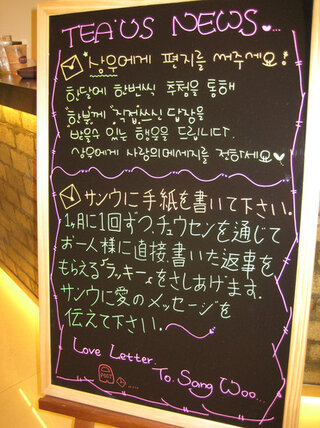 TEA'US NEWS...
상우에게 편지를 써주세요!
한달에 한번씩 추첨을 통해
한분께 직접쓰신 답장을
받을수 있는 행운을 드립니다.
상우에게 사랑의메세지를 전하세요♥
サンウに手紙を書いて下さい.
1ヶ月に1回ずつ、チュウセンを通じて
お一人様に直接書いた返事を
もらえる『ラッキー』をさしあげます.
サンウに愛のメッセージを
伝えて下さい.
Love Letter.
POST
To. Sang Woo...